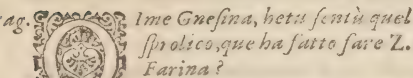 ag. OIme Gnesina, hetu sentù quel
sprolico, que ha fatto fare Z.
Farina?